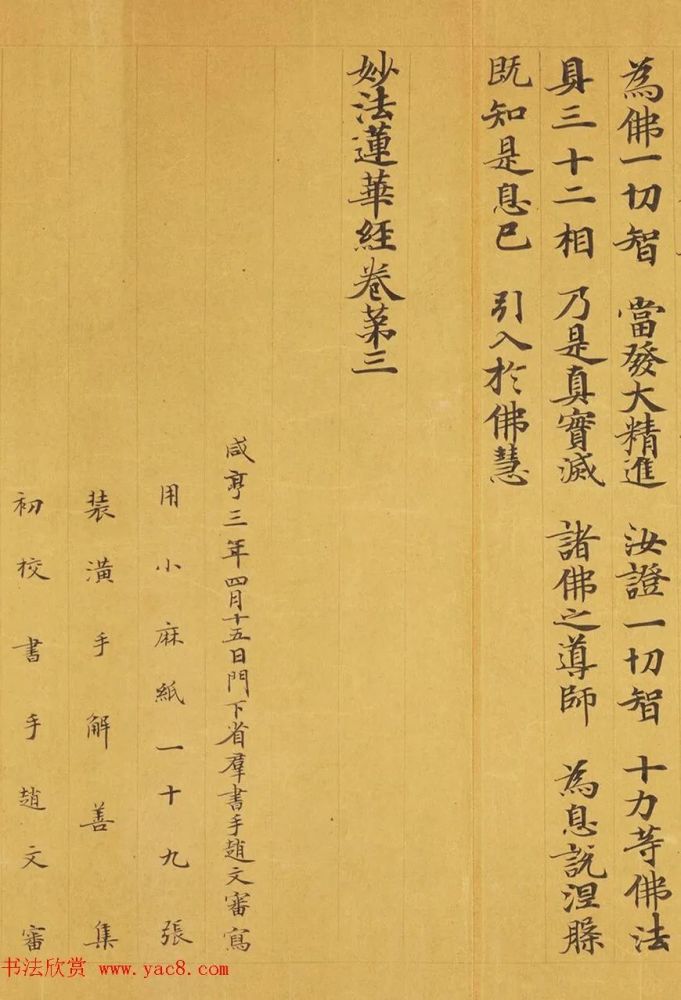 為佛一切智 當發大精進 汝證一切智 十力等佛法
具三十二相 乃是真實滅 諸佛之導師 為息說涅槃
既知是息已 引入於佛慧
妙法蓮華經卷第三
咸亨三年四月十五日門下省羣書手趙文審寫
用小麻紙一十九張
裝潢手解善集
初校書手趙文審
书法欣赏 www.yac8.com